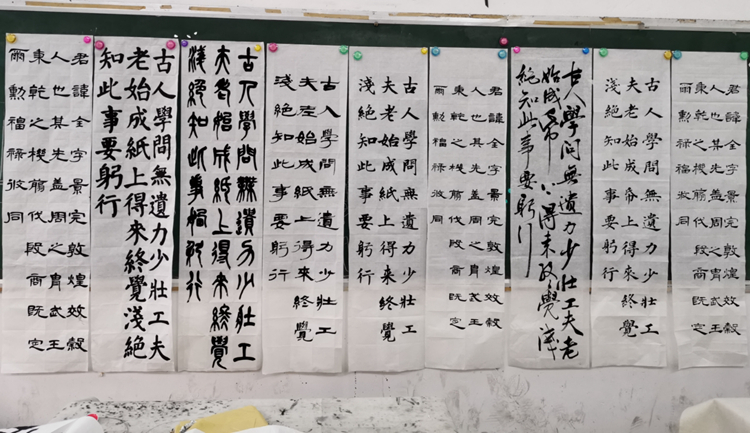 君諱全字景完敦煌效穀
人也其先蓋周之胄武王
秉乾之機翦伐殷商既定
爾勳福祿攸同
古人學問無遺力少壯工
夫老始成帋上得來終覺
淺絕知此事要躬行
古人學問無遺力少壯工夫老
始成帋上得來終覺淺
絕知此事要躬行
君諱全字景完敦煌效穀
人也其先蓋周之胄武王
秉乾之機翦伐殷商既定
爾勳福祿攸同
古人學問無遺力少壯工
夫老始成紙上得來終覺
淺絕知此事要躬行
古人學問無遺力少壯工
夫老始成紙上得來終覺
淺絕知此事要躬行
古人學問無遺力少壯工
夫老始成紙上得來終覺
淺絕知此事要躬行
古人學問無遺力少壯工夫
老始成紙上得來終覺淺絕
知此事要躬行
君諱全字景完敦煌效穀
人也其先蓋周之胄武王
秉乾之機翦伐殷商既定
爾勳福祿攸同